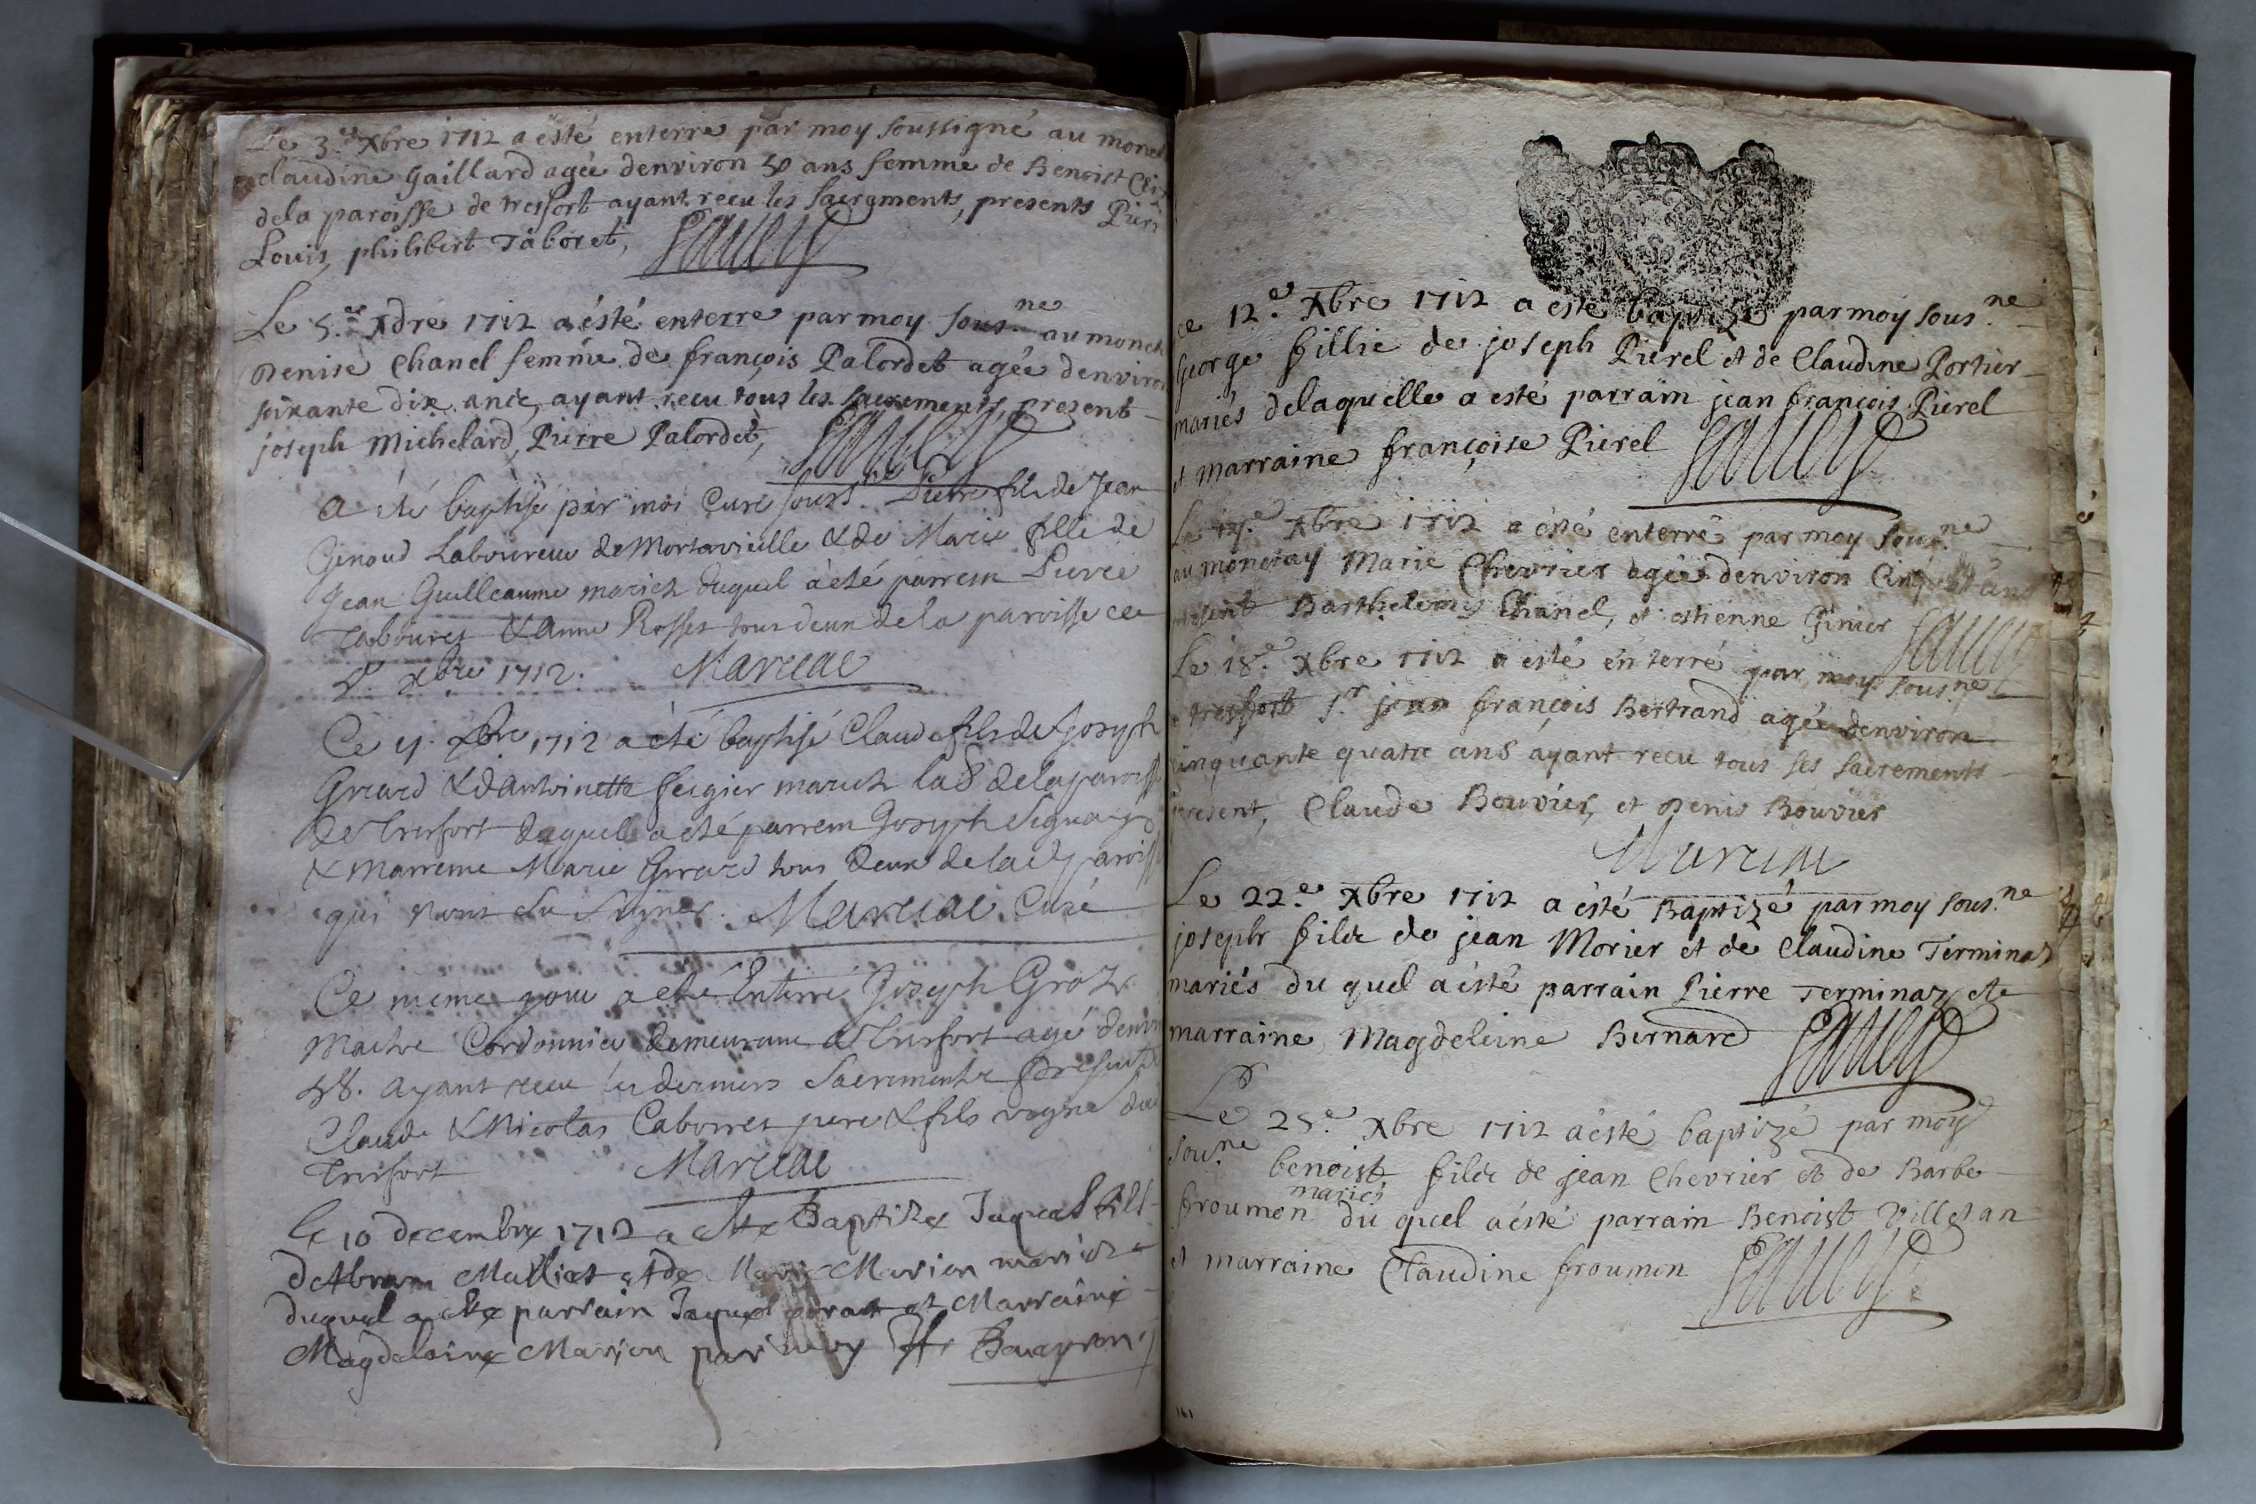 Le 3.e Xbre 1712 a esté enterre par moy soussigné au
claudine gaillard agée denviron 50 ans femme de Benoist
dela paroisse de tresfort ayant recu les sacrements, presents
Louis, philibert Taboret,
Le 5.e Xbre 1712 a ésté enterre par moy sous.ne au
Denise Chanel femme de françois Palordet agée denviron
soixante dix ans, ayant recu tous les sacrements, present
joseph Michelard, Pierre Palordet,
a été baptisé par moi Curé souss. Pierre fils de Jean
Genoud Laboureur de Mortavieille & de Marie fille de
Jean Guilleaume mariez duquel a été parrein Pierre
Tabouret & Anne Rosset tous deux de la paroisse ce
xbre 1712. Marciac
Ce xbre 1712 a été baptisé Claude fils de Joseph
Girard & d'Antoinette feigier mariez de la paroisse
de Tresfort duquel a été parrein Joseph
& marreine Marie Girard tous deux de la d. paroisse
qui n'ont su signer. Marciac Curé
Ce meme jour a été Enterré Joseph Groz
Maitre Cordonnier demeurant a Tresfort agé denviron
58. ayant recu les derniers Sacrements presents
Claude & Nicolas Cabouret pere & fils
Tresfort Marciac
Le 10 decembre 1712 a este Baptize Jaques fils
dAbram Malliet et de Marie Marion maries
duquel a este parrain Jaques et Marraine
Magdelaine Marion par moy
ce 12.e Xbre 1712 a esté baptizé par moy sous.ne
George fillie de joseph Pierel et de Claudine Portier
mariés delaquelle a esté parrain jean françois Pierel
et marraine françoise Pierel
Le Xbre 1712 a ésté enterré par moy sous.ne
au monetay Marie Chevrier agée denviron Cinq ans
present Barthelemy Chanel, et estienne Ginier
Le 18.e Xbre 1712 a esté enterré par moy sous.ne
a tresfort s.r jean françois Bertrand agée denviron
cinquante quatre ans ayant recu tous ses sacrements
present, Claude Bouvier, et Denis Bouvier
Marciac
Le 22.e Xbre 1712 a ésté Baptizé par moy sous.ne
joseph filz de jean Morier et de Claudine Terminaz
mariés du quel a ésté parrain Pierre Terminaz et
marraine Magdeleine Bernard
Le 25.e Xbre 1712 a ésté baptizé par moy
sous.ne benoist, filz de jean Chevrier et de Barbe
froumen mariés du quel a ésté parrain Benoist Villetan
et marraine Claudine froumen
161